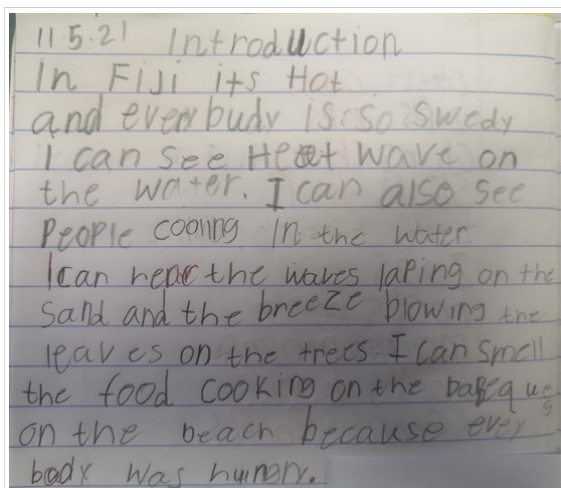 11.5.21 Introduction
In Fiji its Hot
and everybudy is so swedy
I can see Heat wave on
the water. I can also see
People cooling in the water.
I can hear the waves laping on the
sand and the breeze blowing the
leaves on the trees. I can smell
the food cooking on the on the beach because every
body was hungry.